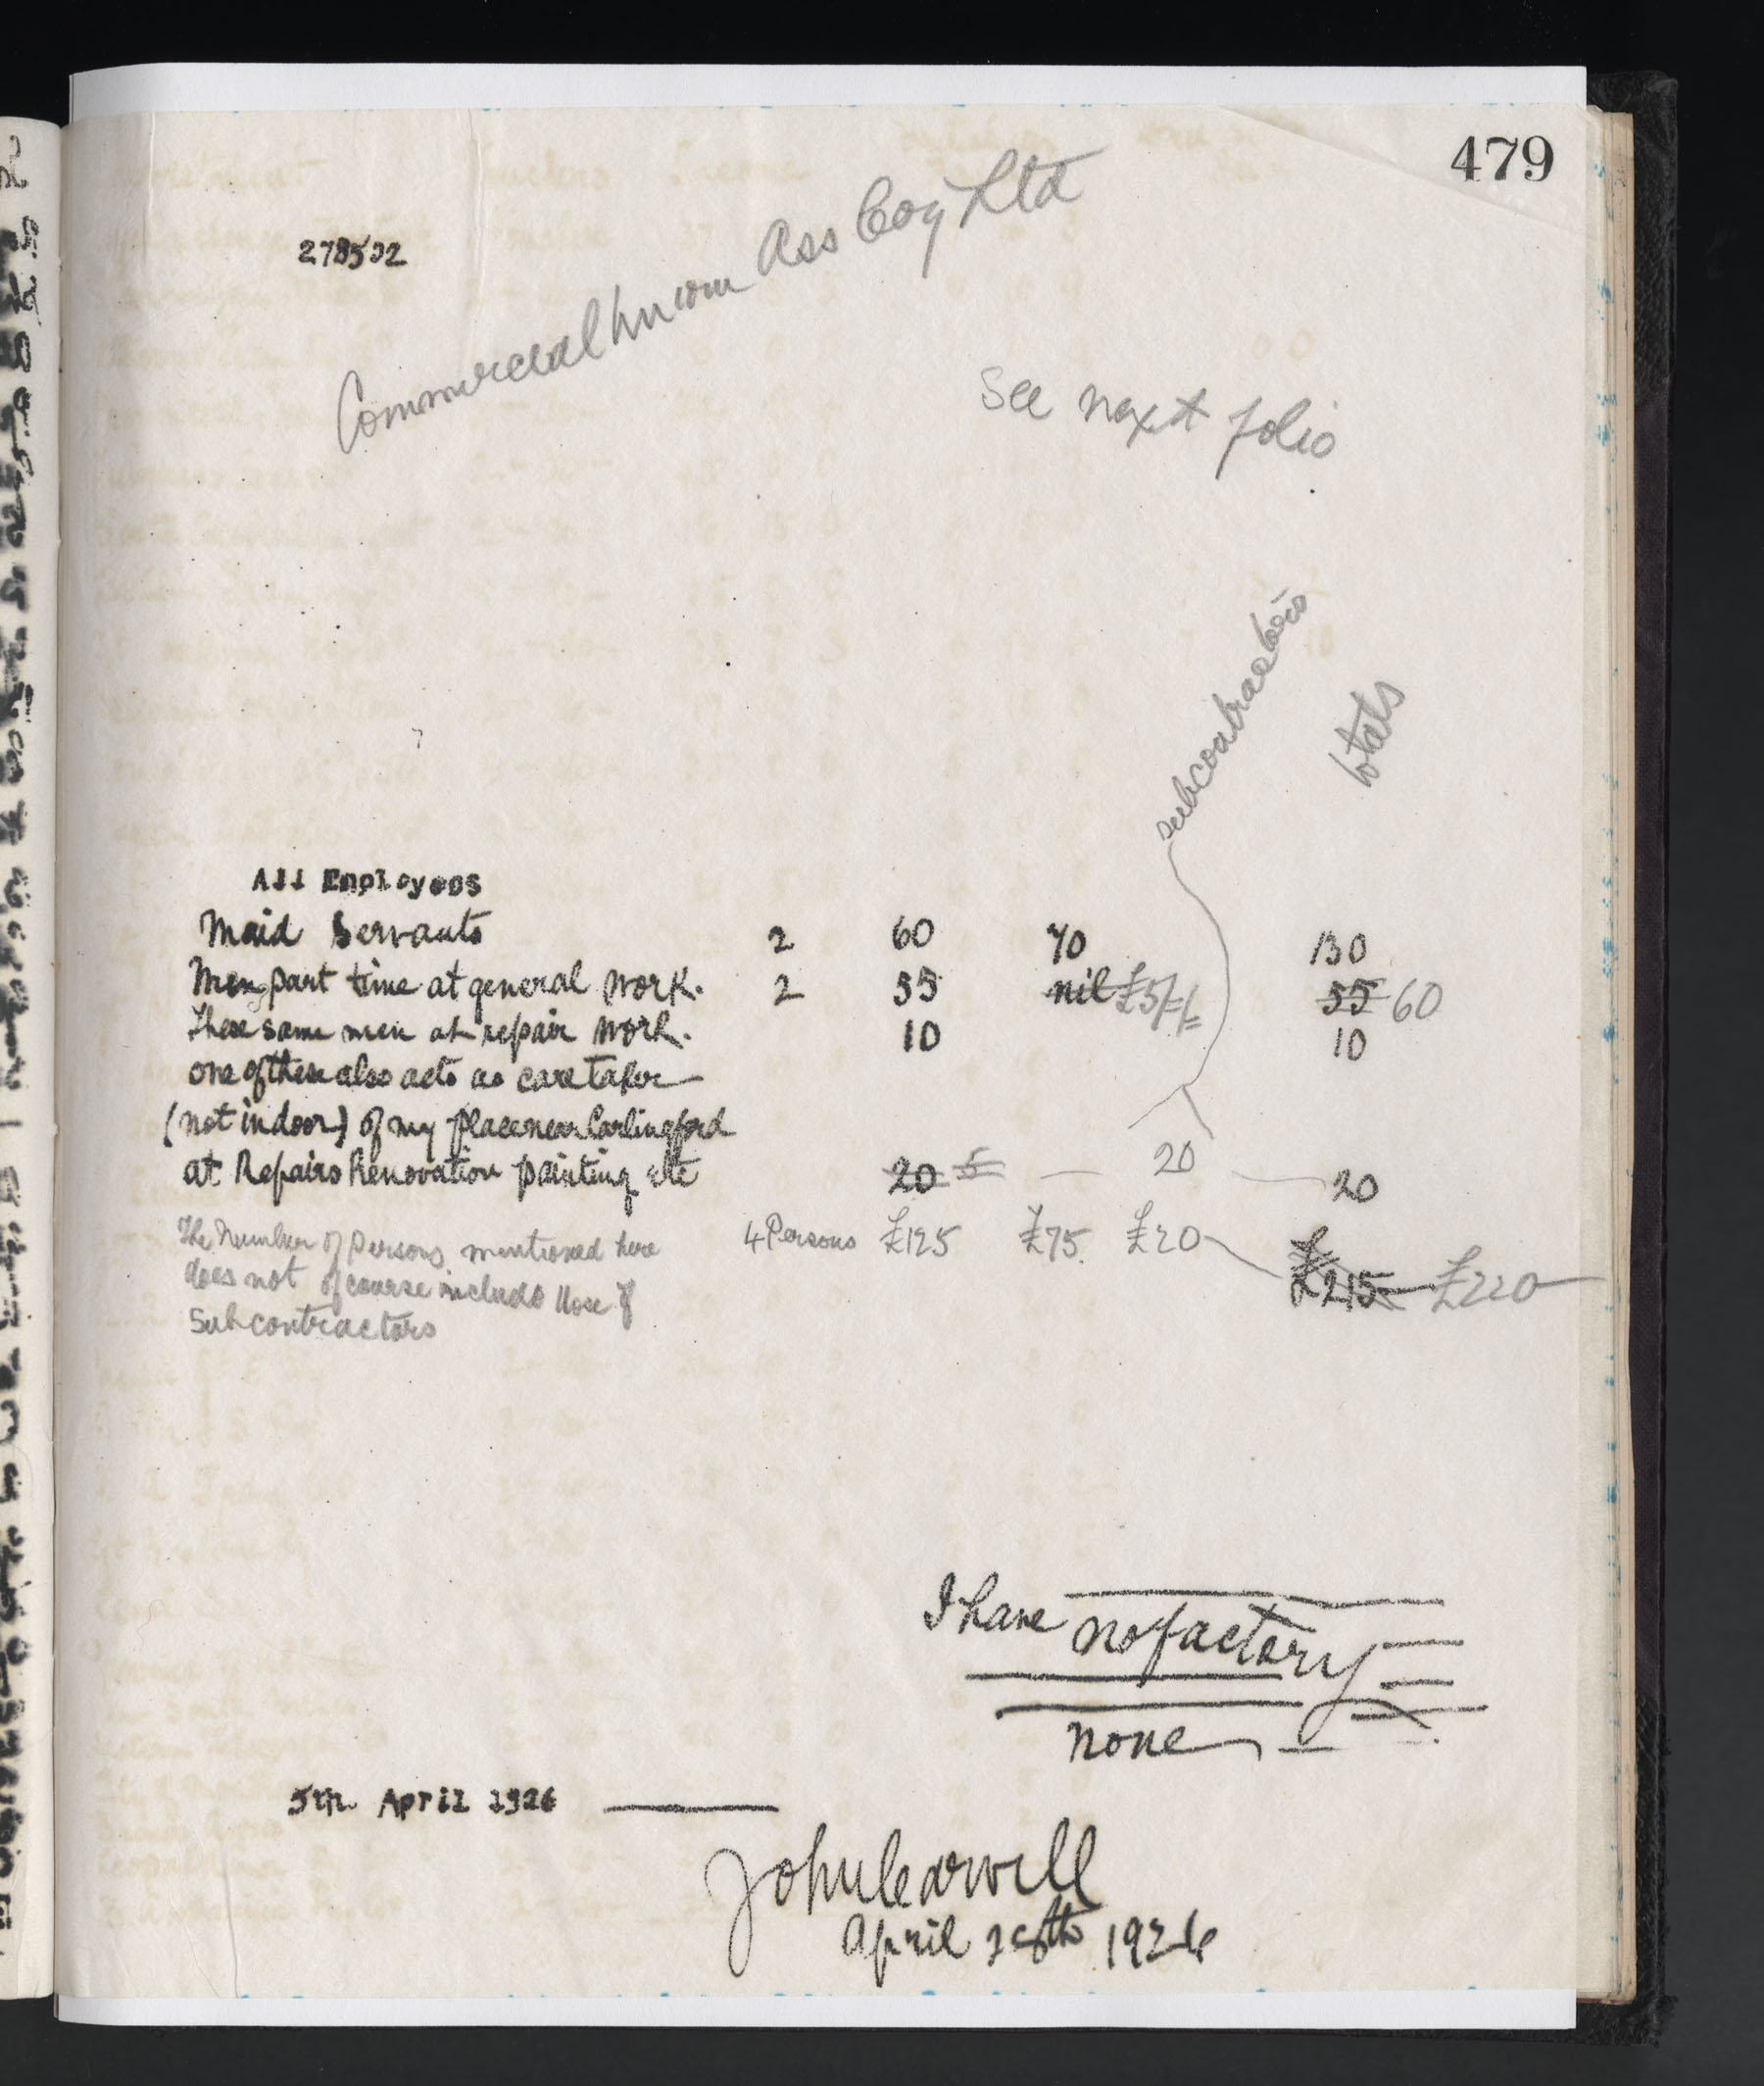 479
278502
Commercial Union Ass Coy Ltd
See next folio
subcontractors
totals
All Employees
Maid Servants 2 60 70 130
Men part time at general work. 2 55 nil £5/-/- 55 60
These same men at repair work. 10 10
one of these also acts as caretaker
(not indoor) of my place near Carlingford
at Repairs Renovation painting etc 20 5 — 20 20
The Number of persons mentioned here 4 Persons £125 £75 £20 £215 £220
does not of course include those of
Subcontractors
I have no factory
none
5th April 1926
John Carwill
April 28th 1926